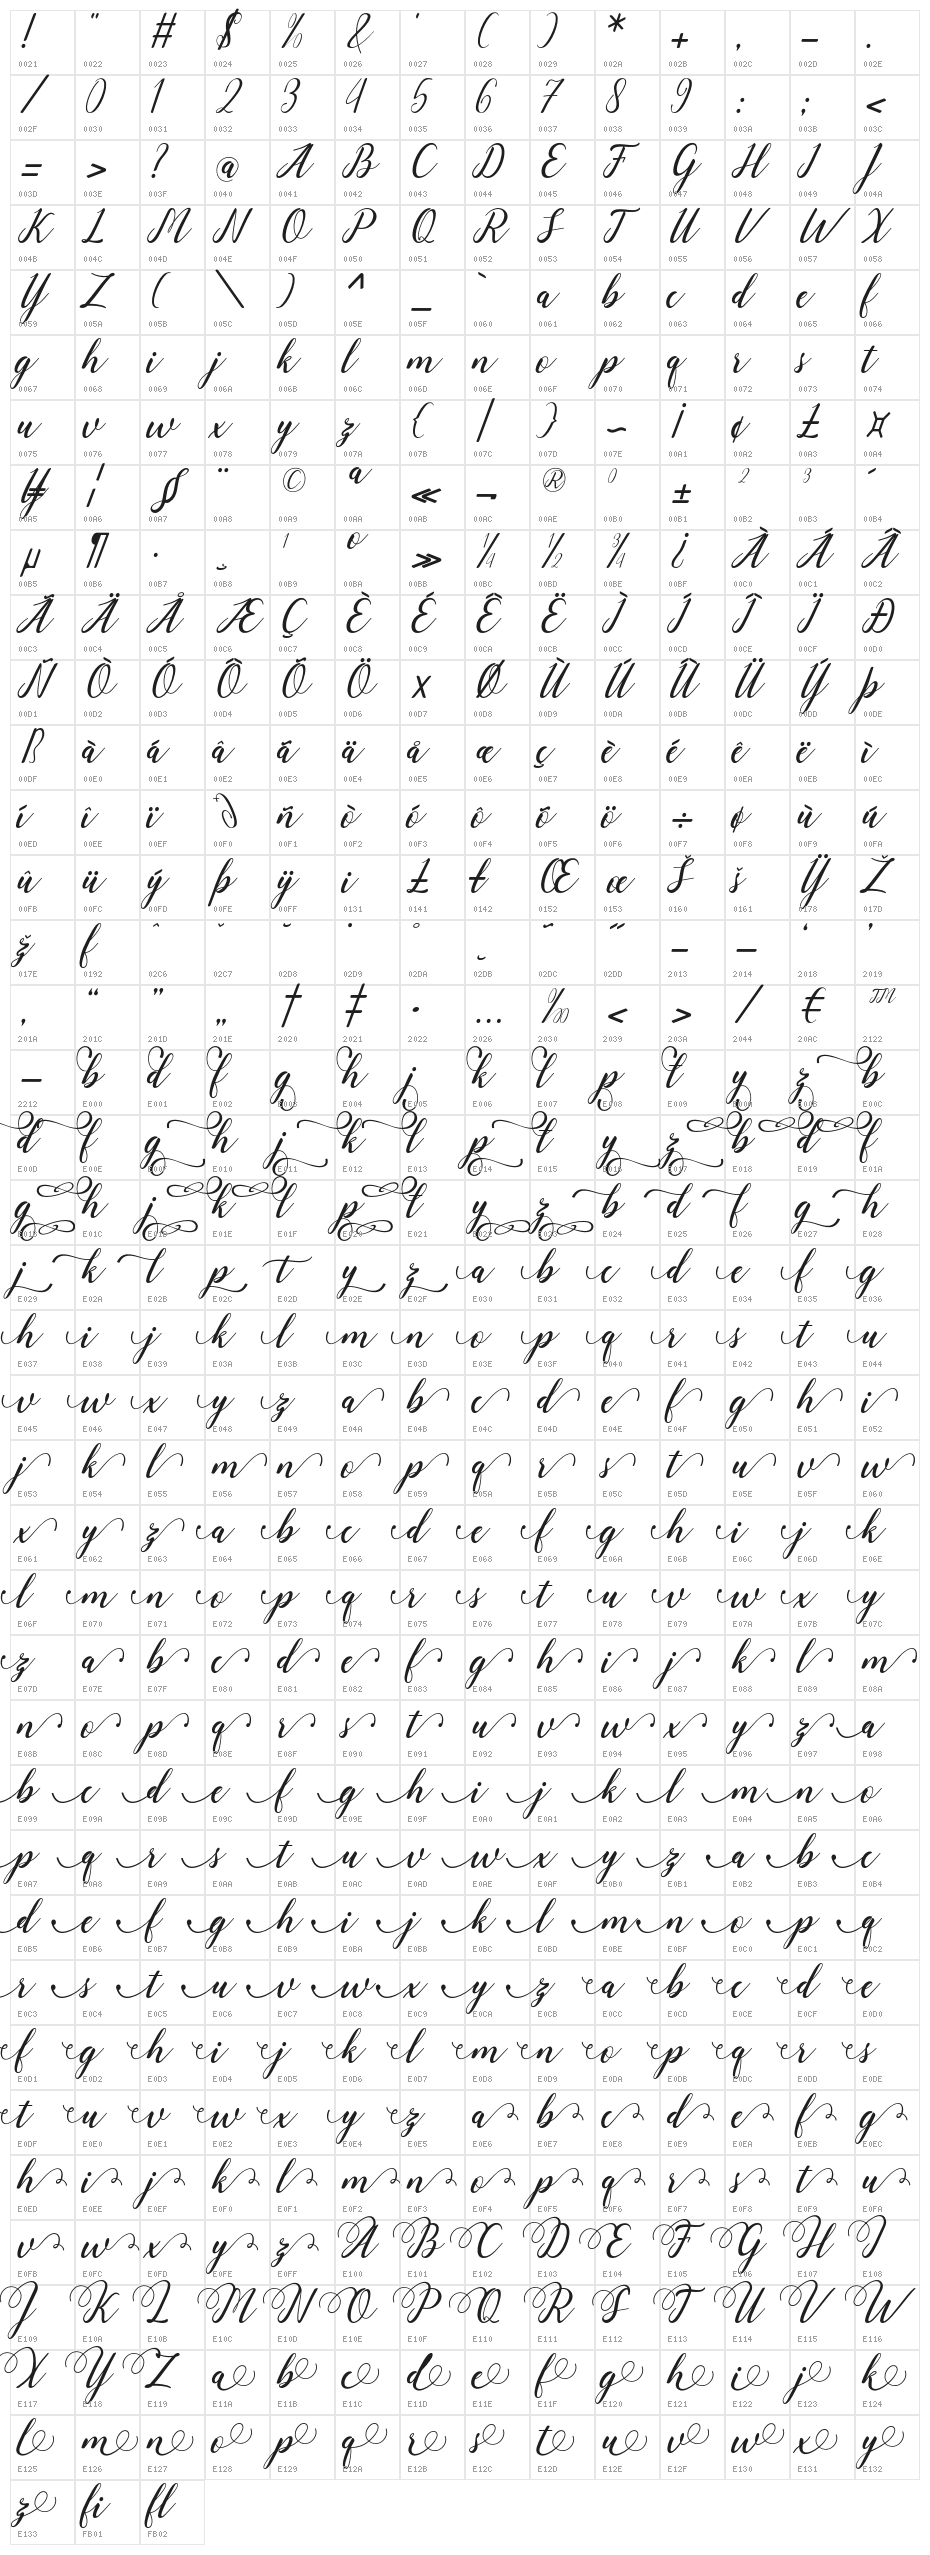 ! " # $ % & ' ( ) * + , - .
0021 0022 0023 0024 0025 0026 0027 0028 0029 002A 002B 002C 002D 002E
/ 0 1 2 3 4 5 6 7 8 9 : ; <
002F 0030 0031 0032 0033 0034 0035 0036 0037 0038 0039 003A 003B 003C
= > ? @ A B C D E F G H I J
003D 003E 003F 0040 0041 0042 0043 0044 0045 0046 0047 0048 0049 004A
K L M N O P Q R S T U V W X
004B 004C 004D 004E 004F 0050 0051 0052 0053 0054 0055 0056 0057 0058
Y Z ( \ ) ^ _ ` a b c d e f
0059 005A 005B 005C 005D 005E 005F 0060 0061 0062 0063 0064 0065 0066
g h i j k l m n o p q r s t
0067 0068 0069 006A 006B 006C 006D 006E 006F 0070 0071 0072 0073 0074
u v w x y z { | } ~ ¡ ¢ £ ¤
0075 0076 0077 0078 0079 007A 007B 007C 007D 007E 00A1 00A2 00A3 00A4
¥ ¦ § ¨ © ª « ¬ ® 0 ± ² ³ ´
00A5 00A6 00A7 00A8 00A9 00AA 00AB 00AC 00AE 00B0 00B1 00B2 00B3 00B4
µ ¶ · ¸ ¹ º » ¼ ½ ¾ ¿ À Á Â
00B5 00B6 00B7 00B8 00B9 00BA 00BB 00BC 00BD 00BE 00BF 00C0 00C1 00C2
Ã Ä Å Æ Ç È É Ê Ë Ì Í Î Ï Ð
00C3 00C4 00C5 00C6 00C7 00C8 00C9 00CA 00CB 00CC 00CD 00CE 00CF 00D0
Ñ Ò Ó Ô Õ Ö × Ø Ù Ú Û Ü Ý Þ
00D1 00D2 00D3 00D4 00D5 00D6 00D7 00D8 00D9 00DA 00DB 00DC 00DD 00DE
ß à á â ã ä å æ ç è é ê ë ì
00DF 00E0 00E1 00E2 00E3 00E4 00E5 00E6 00E7 00E8 00E9 00EA 00EB 00EC
í î ï ð ñ ò ó ô õ ö ÷ ø ù ú
00ED 00EE 00EF 00F0 00F1 00F2 00F3 00F4 00F5 00F6 00F7 00F8 00F9 00FA
û ü ý þ ÿ ı Ł ł Œ œ Š š Ÿ Ž
00FB 00FC 00FD 00FE 00FF 0131 0141 0142 0152 0153 0160 0161 0178 017D
ž ƒ ˆ ˇ ˘ ˙ ˚ ˛ ˜ ˝ – — ‘ ’
017E 0192 02C6 02C7 02D8 02D9 02DA 02DB 02DC 02DD 2013 2014 2018 2019
‚ “ ” „ † ‡ • … ‰ ‹ › ⁄ € ™
201A 201C 201D 201E 2020 2021 2022 2026 2030 2039 203A 2044 20AC 2122
− b d f g h j k l p t y z b
2212 E000 E001 E002 E003 E004 E005 E006 E007 E008 E009 E00A E00B E00C
d f g h j k l p t y z b d f
E00D E00E E00F E010 E011 E012 E013 E014 E015 E016 E017 E018 E019 E01A
g h j k l p t y z b d f g h
E01B E01C E01D E01E E01F E020 E021 E022 E023 E024 E025 E026 E027 E028
j k l p t y z a b c d e f g
E029 E02A E02B E02C E02D E02E E02F E030 E031 E032 E033 E034 E035 E036
h i j k l m n o p q r s t u
E037 E038 E039 E03A E03B E03C E03D E03E E03F E040 E041 E042 E043 E044
v w x y z a b c d e f g h i
E045 E046 E047 E048 E049 E04A E04B E04C E04D E04E E04F E050 E051 E052
j k l m n o p q r s t u v w
E053 E054 E055 E056 E057 E058 E059 E05A E05B E05C E05D E05E E05F E060
x y z a b c d e f g h i j k
E061 E062 E063 E064 E065 E066 E067 E068 E069 E06A E06B E06C E06D E06E
l m n o p q r s t u v w x y
E06F E070 E071 E072 E073 E074 E075 E076 E077 E078 E079 E07A E07B E07C
z a b c d e f g h i j k l m
E07D E07E E07F E080 E081 E082 E083 E084 E085 E086 E087 E088 E089 E08A
n o p q r s t u v w x y z a
E08B E08C E08D E08E E08F E090 E091 E092 E093 E094 E095 E096 E097 E098
b c d e f g h i j k l m n o
E099 E09A E09B E09C E09D E09E E09F E0A0 E0A1 E0A2 E0A3 E0A4 E0A5 E0A6
p q r s t u v w x y z a b c
E0A7 E0A8 E0A9 E0AA E0AB E0AC E0AD E0AE E0AF E0B0 E0B1 E0B2 E0B3 E0B4
d e f g h i j k l m n o p q
E0B5 E0B6 E0B7 E0B8 E0B9 E0BA E0BB E0BC E0BD E0BE E0BF E0C0 E0C1 E0C2
r s t u v w x y z a b c d e
E0C3 E0C4 E0C5 E0C6 E0C7 E0C8 E0C9 E0CA E0CB E0CC E0CD E0CE E0CF E0D0
f g h i j k l m n o p q r s
E0D1 E0D2 E0D3 E0D4 E0D5 E0D6 E0D7 E0D8 E0D9 E0DA E0DB E0DC E0DD E0DE
t u v w x y z a b c d e f g
E0DF E0E0 E0E1 E0E2 E0E3 E0E4 E0E5 E0E6 E0E7 E0E8 E0E9 E0EA E0EB E0EC
h i j k l m n o p q r s t u
E0ED E0EE E0EF E0F0 E0F1 E0F2 E0F3 E0F4 E0F5 E0F6 E0F7 E0F8 E0F9 E0FA
v w x y z A B C D E F G H I
E0FB E0FC E0FD E0FE E0FF E100 E101 E102 E103 E104 E105 E106 E107 E108
J K L M N O P Q R S T U V W
E109 E10A E10B E10C E10D E10E E10F E110 E111 E112 E113 E114 E115 E116
X Y Z a b c d e f g h i j k
E117 E118 E119 E11A E11B E11C E11D E11E E11F E120 E121 E122 E123 E124
l m n o p q r s t u v w x y
E125 E126 E127 E128 E129 E12A E12B E12C E12D E12E E12F E130 E131 E132
z fi fl
E133 FB01 FB02